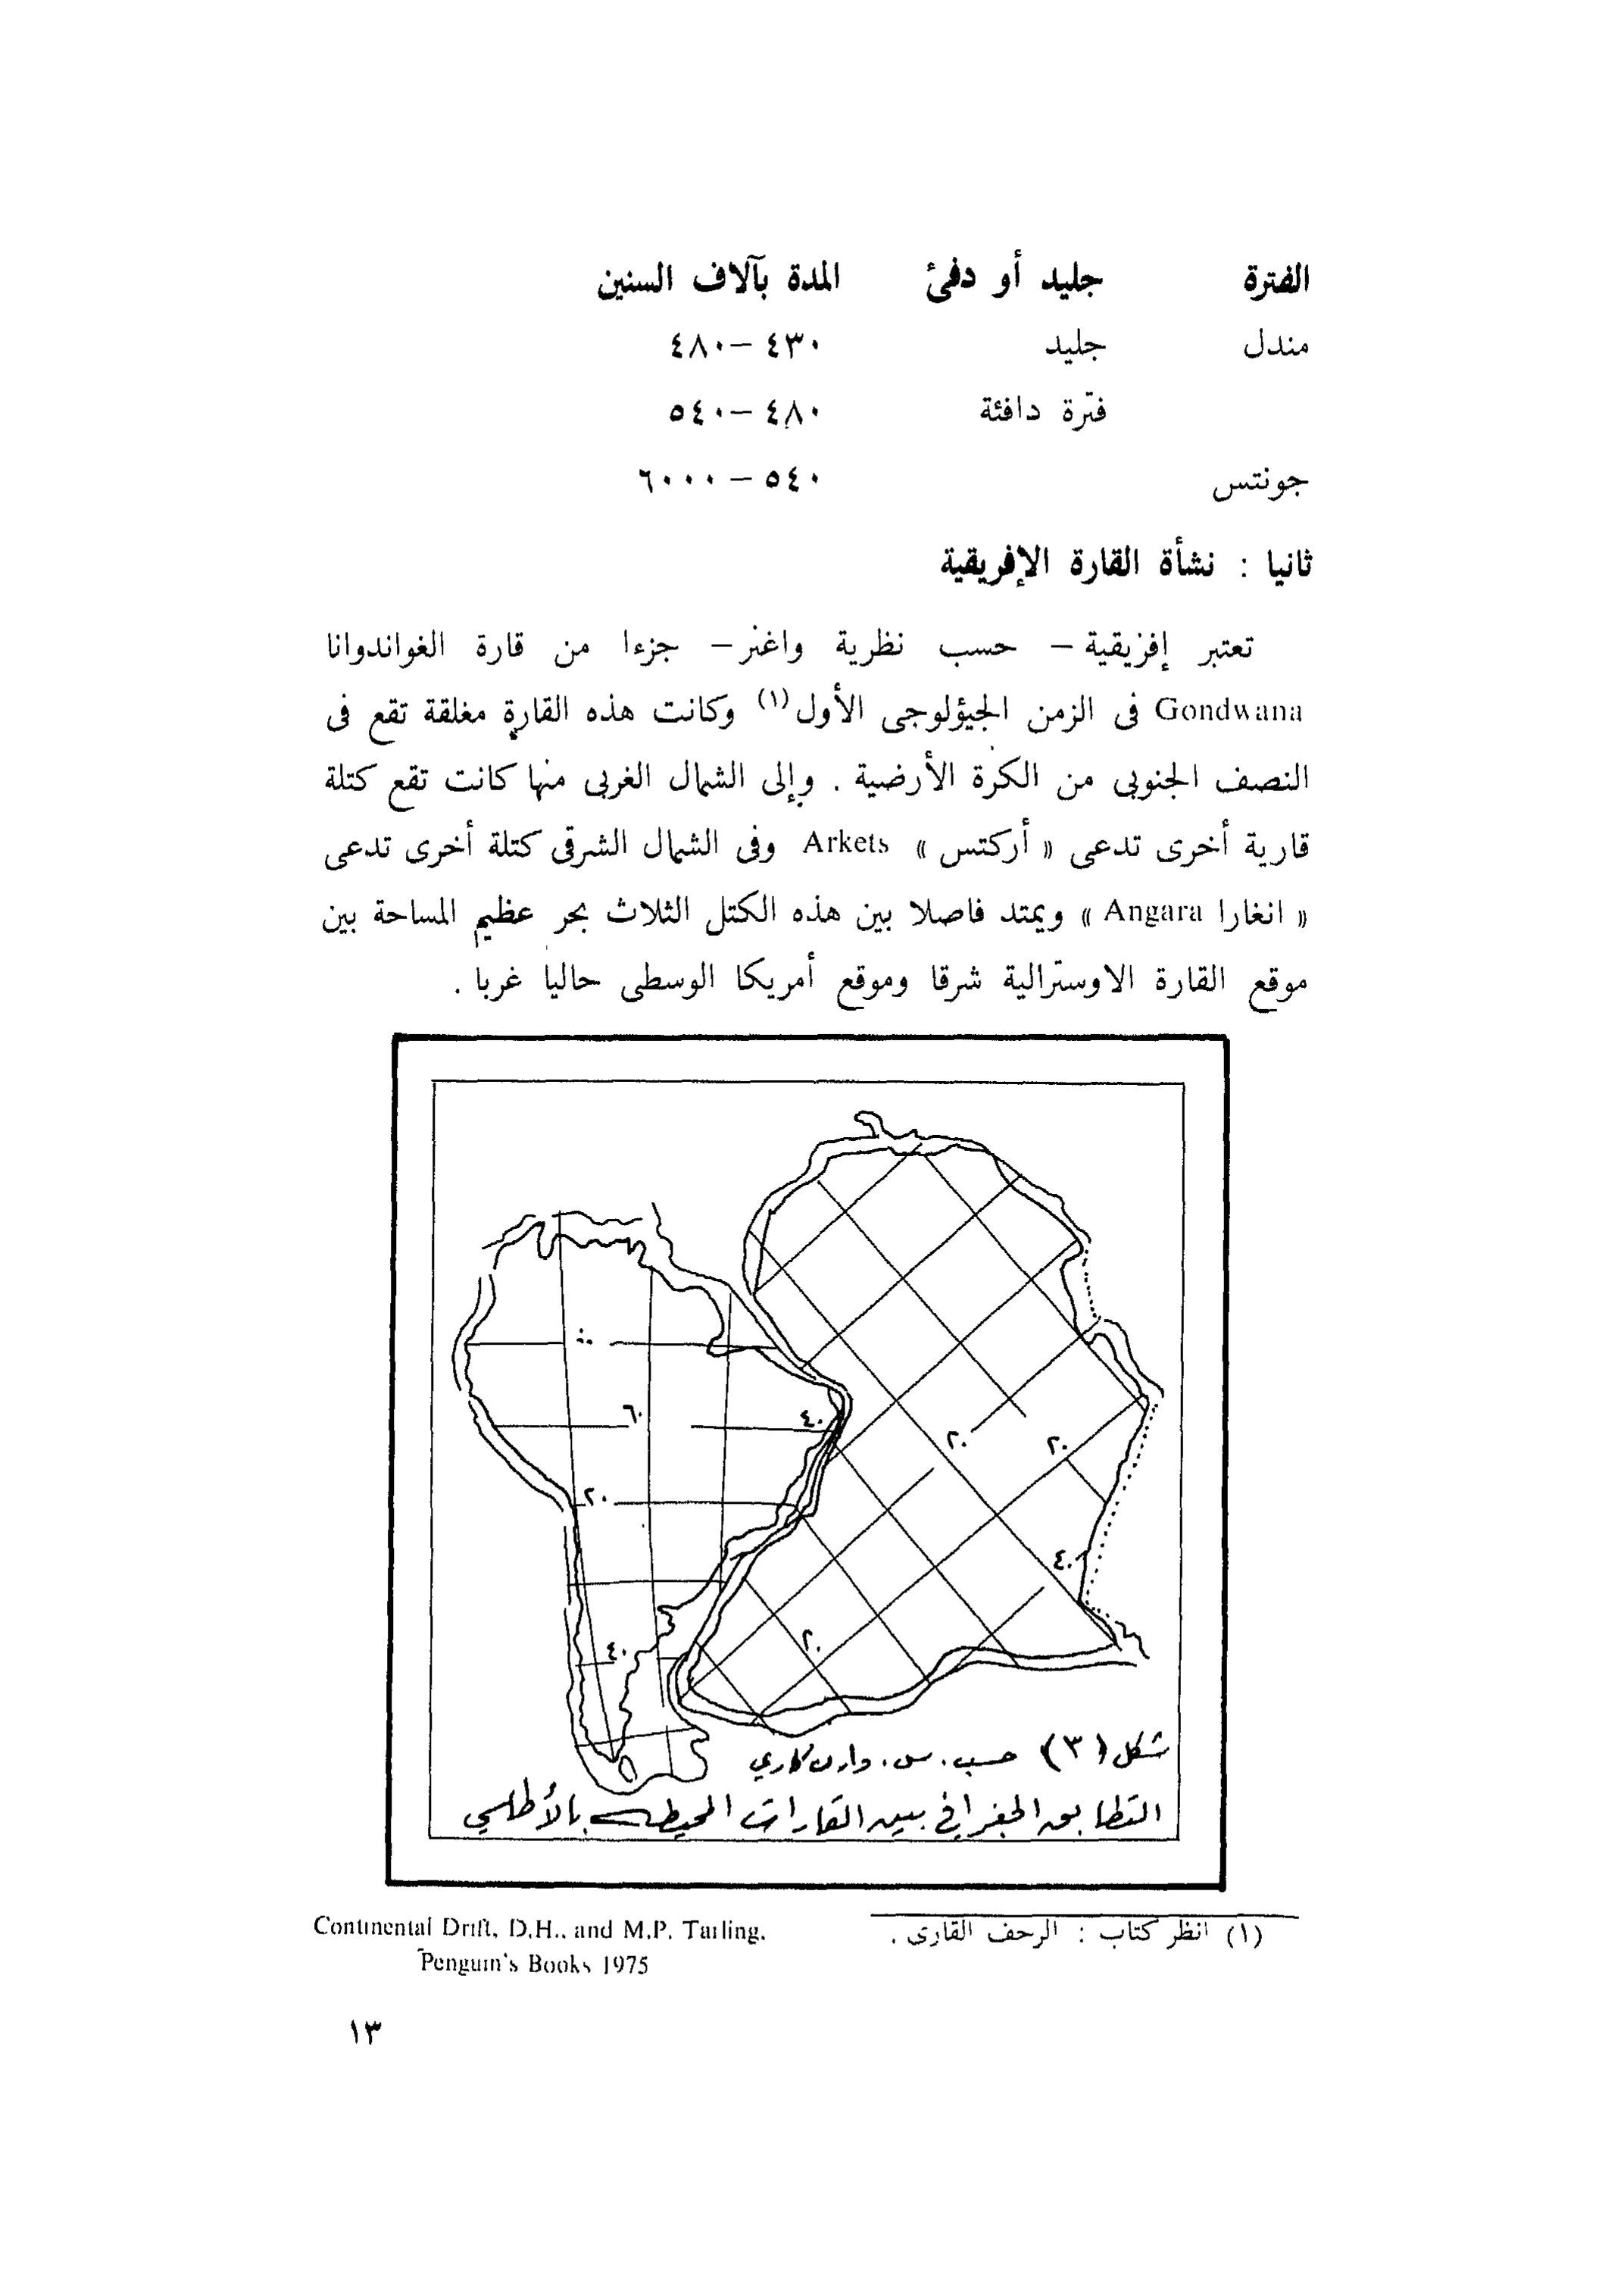 الفترة جليد أو دفئ المدة بآلاف السنين
مندل جليد ٤٣٠ – ٤٨٠
فترة دافئة ٤٨٠ – ٥٤٠
جونتس ٥٤٠ – ٦٠٠٠
ثانيا : نشأة القارة الإفريقية
تعتبر إفريقية – حسب نظرية واغنر – جزءا من قارة الغواندوانا
Gondwana فى الزمن الجيؤلوجى الأول (١) وكانت هذه القارة مغلقة تقع فى
النصف الجنوبى من الكرة الأرضية . وإلى الشمال الغربى منها كانت تقع كتلة
قارية أخرى تدعى « أركتس » Arkets وفى الشمال الشرقى كتلة أخرى تدعى
« انغارا Angara » ويمتد فاصلا بين هذه الكتل الثلاث بحر عظيم المساحة بين
موقع القارة الاوسترالية شرقا وموقع أمريكا الوسطى حاليا غربا .
٦٠
٤٠
٢٠
٢٠
٢٠
٤٠
٤٠
٢٠
شكل (٣) حسب . س . وارن كاري
التطابق الجغرافي بين القارات المحيطة بالأطلسي
(١) انظر كتاب : الزحف القارى .
Continental Drift, D.H., and M.P. Tarling.
Penguin's Books 1975
١٣